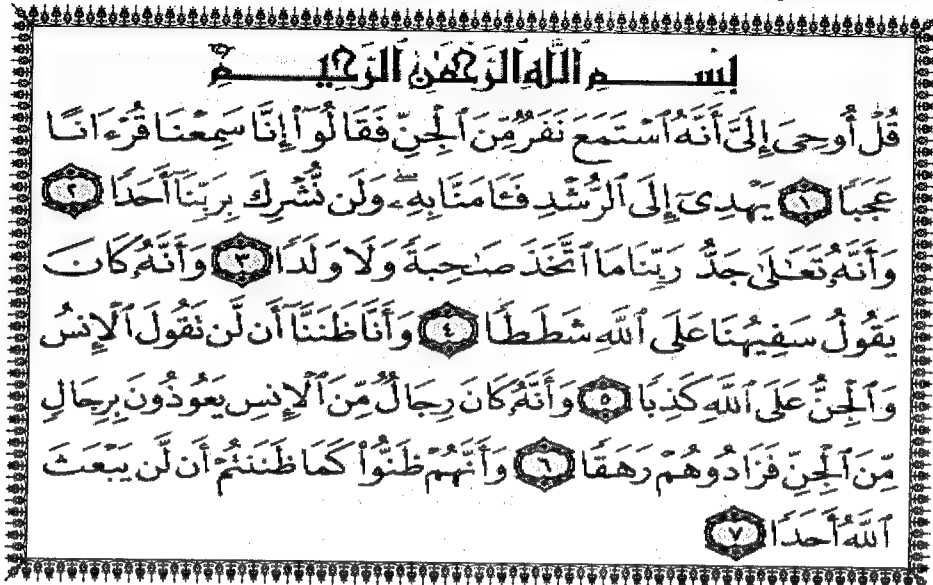 بِسْمِ ٱللَّهِ ٱلرَّحْمَٰنِ ٱلرَّحِيمِ
قُلْ أُوحِيَ إِلَيَّ أَنَّهُ ٱسْتَمَعَ نَفَرٌ مِّنَ ٱلْجِنِّ فَقَالُوٓا۟ إِنَّا سَمِعْنَا قُرْءَانًا
عَجَبًا ١ يَهْدِىٓ إِلَى ٱلرُّشْدِ فَـَٔامَنَّا بِهِۦ ۖ وَلَن نُّشْرِكَ بِرَبِّنَآ أَحَدًا ٢
وَأَنَّهُۥ تَعَٰلَىٰ جَدُّ رَبِّنَا مَا ٱتَّخَذَ صَٰحِبَةً وَلَا وَلَدًا ٣ وَأَنَّهُۥ كَانَ
يَقُولُ سَفِيهُنَا عَلَى ٱللَّهِ شَطَطًا ٤ وَأَنَّا ظَنَنَّآ أَن لَّن تَقُولَ ٱلْإِنسُ
وَٱلْجِنُّ عَلَى ٱللَّهِ كَذِبًا ٥ وَأَنَّهُۥ كَانَ رِجَالٌ مِّنَ ٱلْإِنسِ يَعُوذُونَ بِرِجَالٍ
مِّنَ ٱلْجِنِّ فَزَادُوهُمْ رَهَقًا ٦ وَأَنَّهُمْ ظَنُّوا۟ كَمَا ظَنَنتُمْ أَن لَّن يَبْعَثَ
ٱللَّهُ أَحَدًا ٧